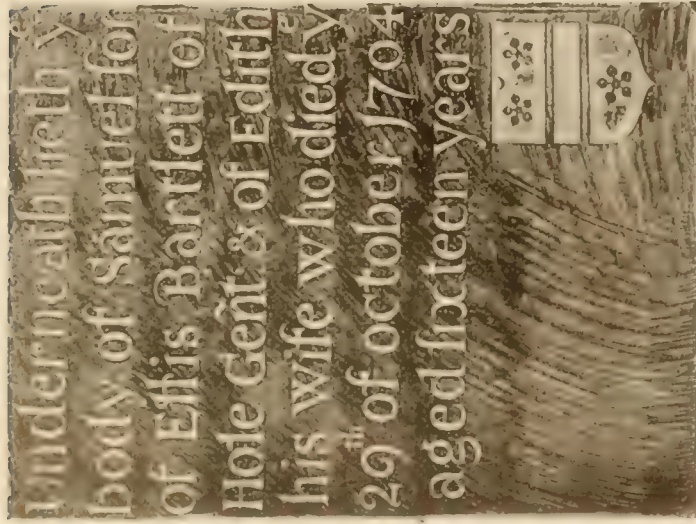 Underneath lieth y
body of Samuel son
of Ellis Bartlett of
Hole Gent & of Edith
his wife who died y
29th of october 1704
aged sixteen years